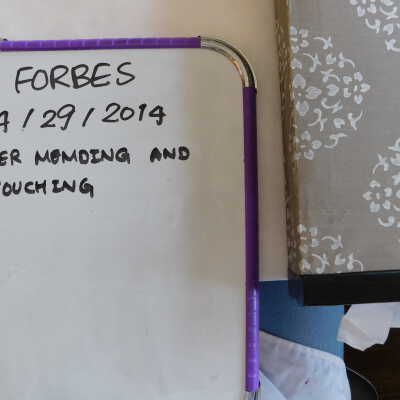 FORBES
4/29/2014
ER MEMDING AND
OUCHING